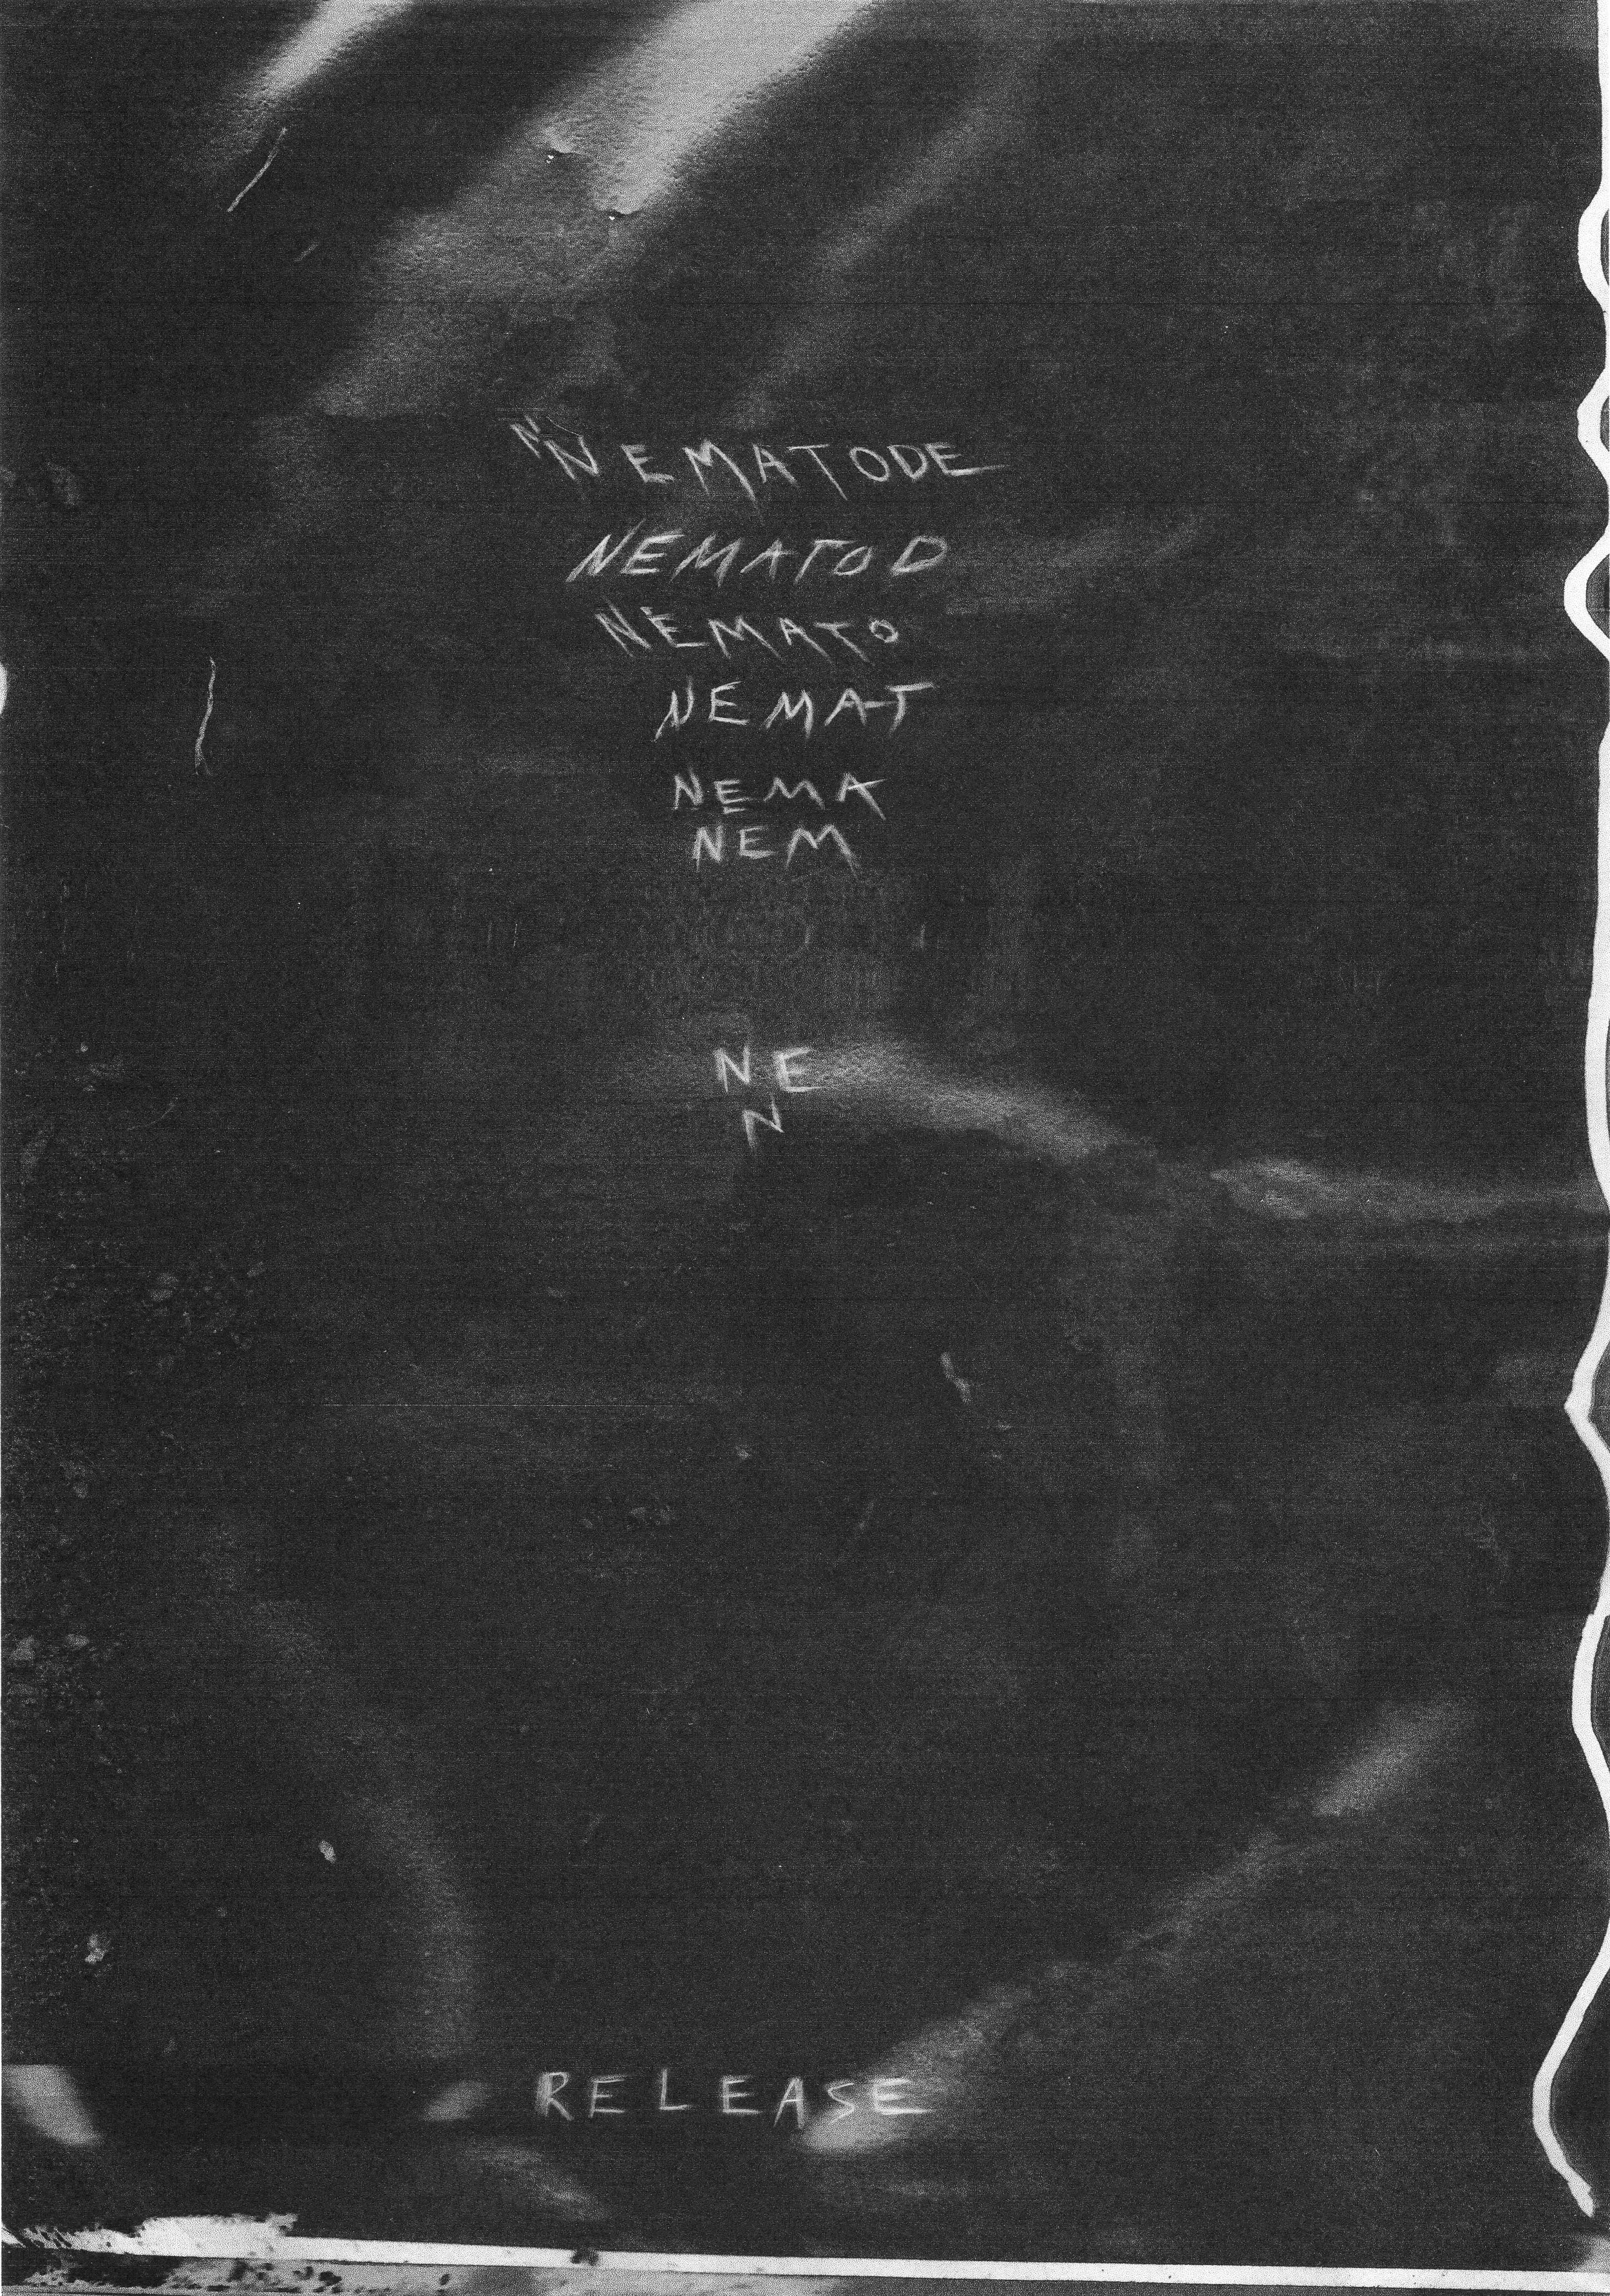 NNEMATODE
NEMATOD
NEMATO
NEMAT
NEMA
NEM
NE
N
RELEASE